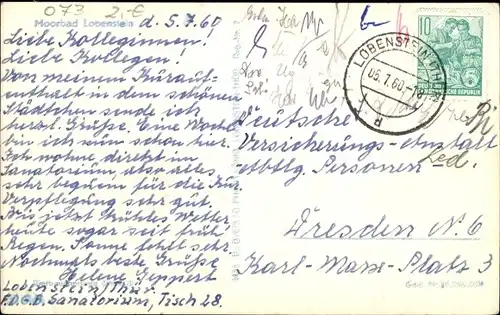 073 2,- €
Moorbad Lobenstein d. 5.7.60
Liebe Kolleginnen!
Liebe Kollegen!
Von meinem Kurauf-
enthalt in dem schönen
Städtchen sende ich
herzl. Grüße. Eine Woche
bin ich nun schon hier.
Ich wohne direkt im
Sanatorium, also alles
sehr bequem für die Kur.
Verpflegung sehr gut.
Bis jetzt kühles Wetter
heute sogar seit früh
Regen. Sonne fehlt sehr
Nochmals beste Grüße
Helene Geppert
Lobenstein/Thür.
F.D.G.B. Sanatorium, Tisch 28.
10
DEUTSCHE DEMOKRATISCHE REPUBLIK
LOBENSTEIN (THÜR)
Deutsche
Versicherungs-Anstalt
Abtlg. Personen
Dresden N. 6
Karl-Marx-Platz 3